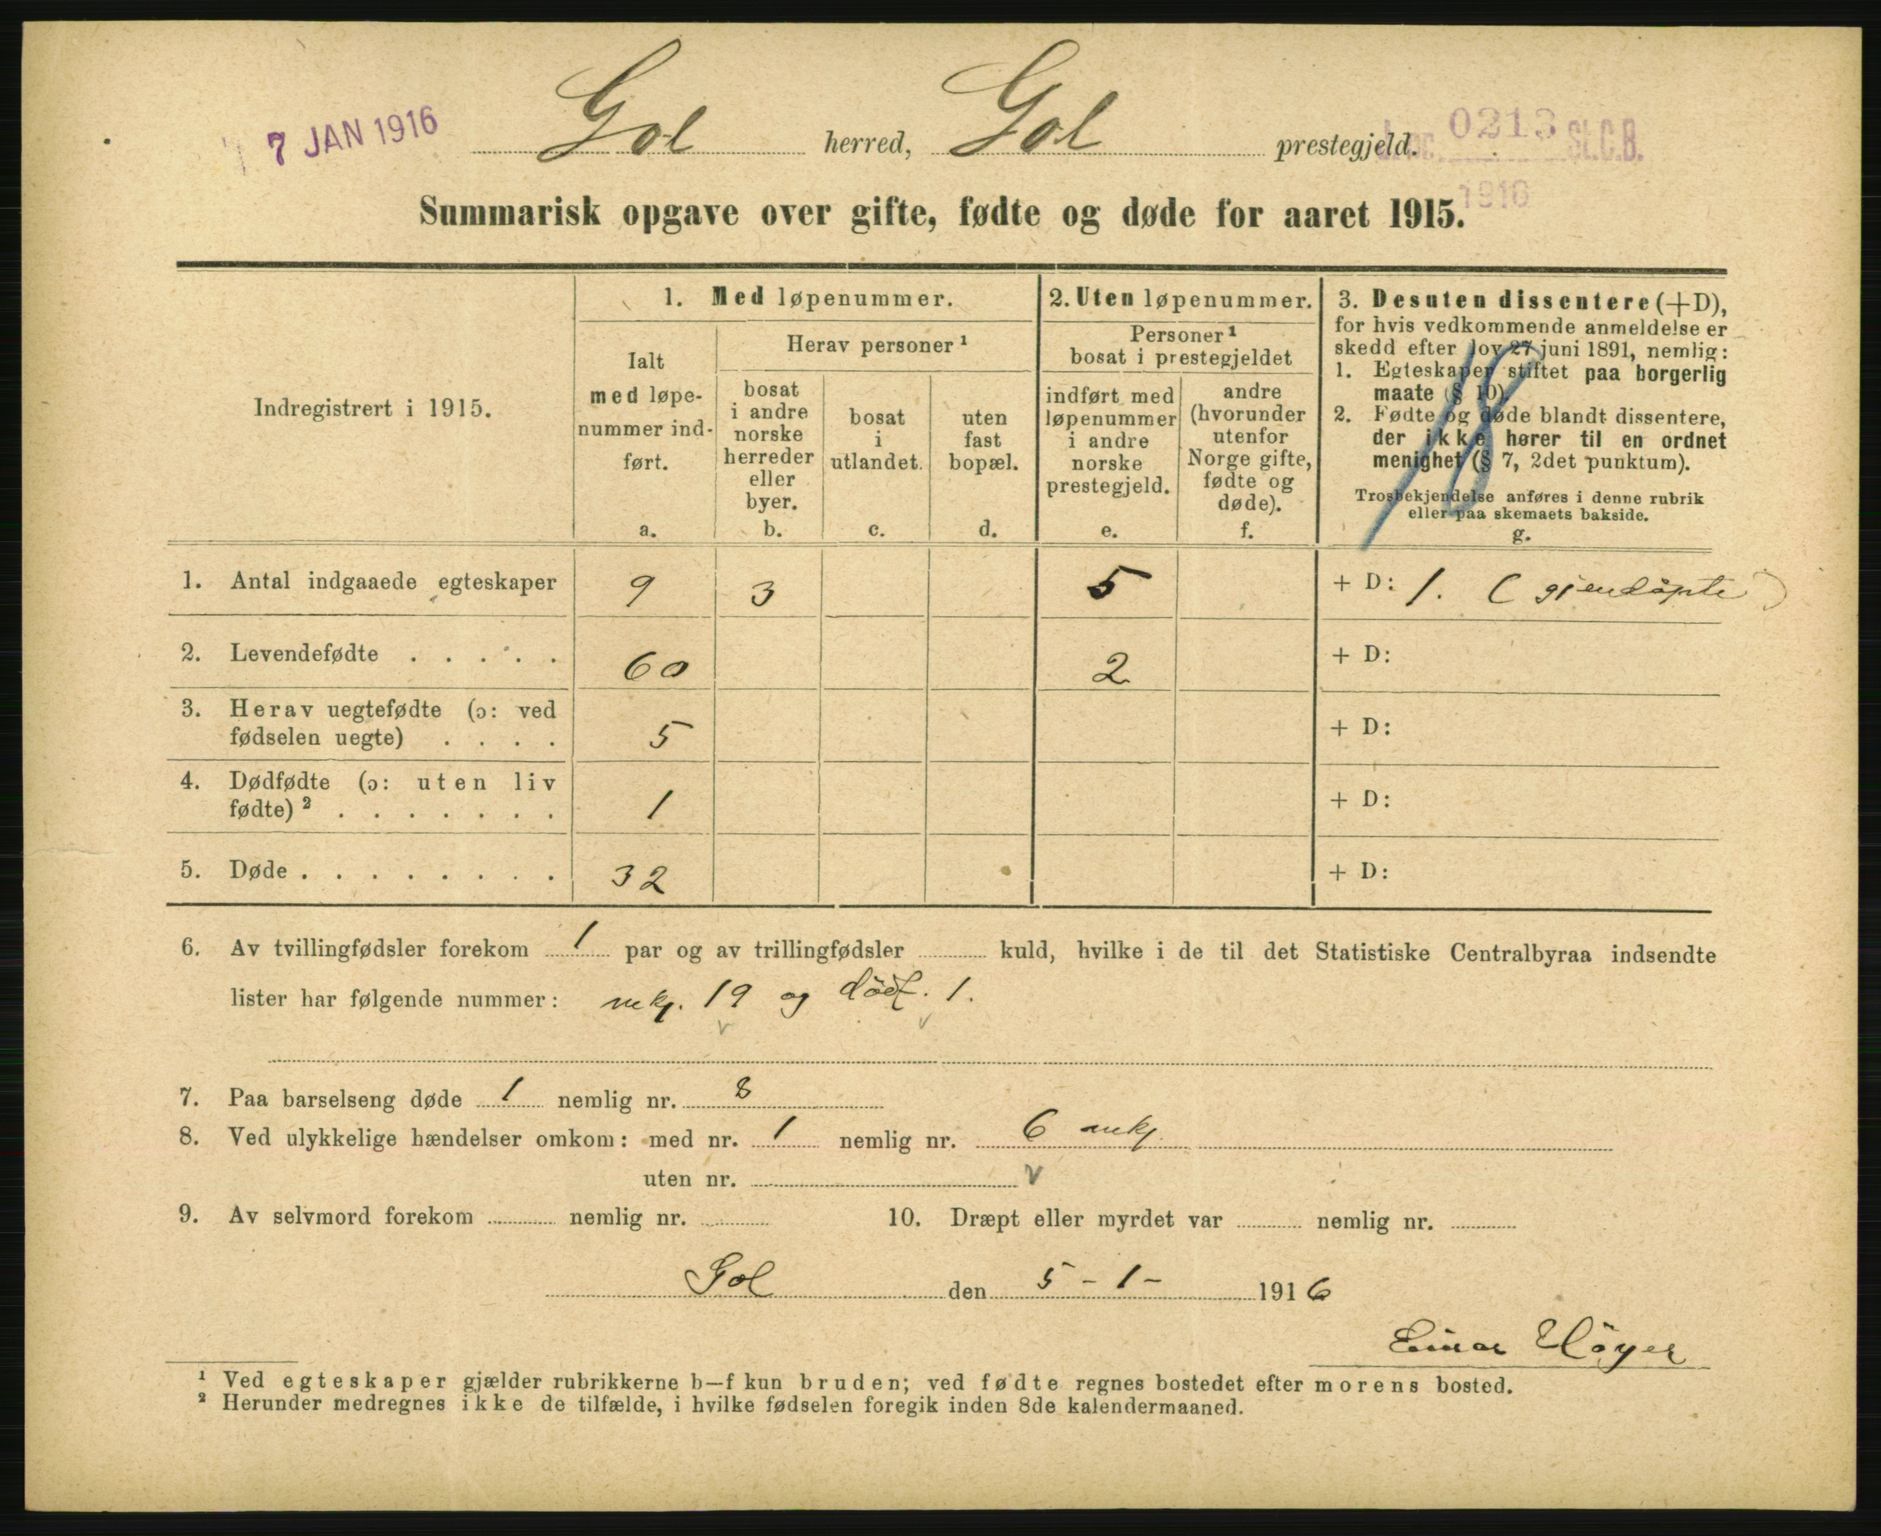 7 JAN 1916
Gol herred, Gol prestegjeld.
0213 St.C.B.
1916
Summarisk opgave over gifte, fødte og døde for aaret 1915.
Indregistrert i 1915.
1. Med løpenummer.
Ialt
med løpe-
nummer ind-
ført.
a.
Herav personer ¹
bosat
i andre
norske
herreder
eller
byer.
b.
bosat
i
utlandet.
c.
uten
fast
bopæl.
d.
2. Uten løpenummer.
Personer ¹
bosat i prestegjeldet
indført med
løpenummer
i andre
norske
prestegjeld.
e.
andre
(hvorunder
utenfor
Norge gifte,
fødte og
døde).
f.
3. Desuten dissentere (+D),
for hvis vedkommende anmeldelse er
skedd efter lov 27 juni 1891, nemlig:
1. Egteskaper stiftet paa borgerlig
maate (§ 10).
2. Fødte og døde blandt dissentere,
der ikke hører til en ordnet
menighet (§ 7, 2det punktum).
Trosbekjendelse anføres i denne rubrik
eller paa skemaets bakside.
g.
1. Antal indgaaede egteskaper 9 3 5 + D: 1. (gjendöpte)
2. Levendefødte . . . . . 60 2 + D:
3. Herav uegtefødte (ɔ: ved
fødselen uegte) . . . . 5 + D:
4. Dødfødte (ɔ: uten liv
fødte) ² . . . . . . . 1 + D:
5. Døde . . . . . . . . 32 + D:
6. Av tvillingfødsler forekom 1 par og av trillingfødsler kuld, hvilke i de til det Statistiske Centralbyraa indsendte
lister har følgende nummer: mkj. 19 og dödf. 1.
7. Paa barselseng døde 1 nemlig nr. 8
8. Ved ulykkelige hændelser omkom: med nr. 1 nemlig nr. 6 mkj.
uten nr.
9. Av selvmord forekom nemlig nr. 10. Dræpt eller myrdet var nemlig nr.
Gol den 5 - 1 - 1916
Einar Höyer
¹ Ved egteskaper gjælder rubrikkerne b—f kun bruden; ved fødte regnes bostedet efter morens bosted.
² Herunder medregnes ikke de tilfælde, i hvilke fødselen foregik inden 8de kalendermaaned.